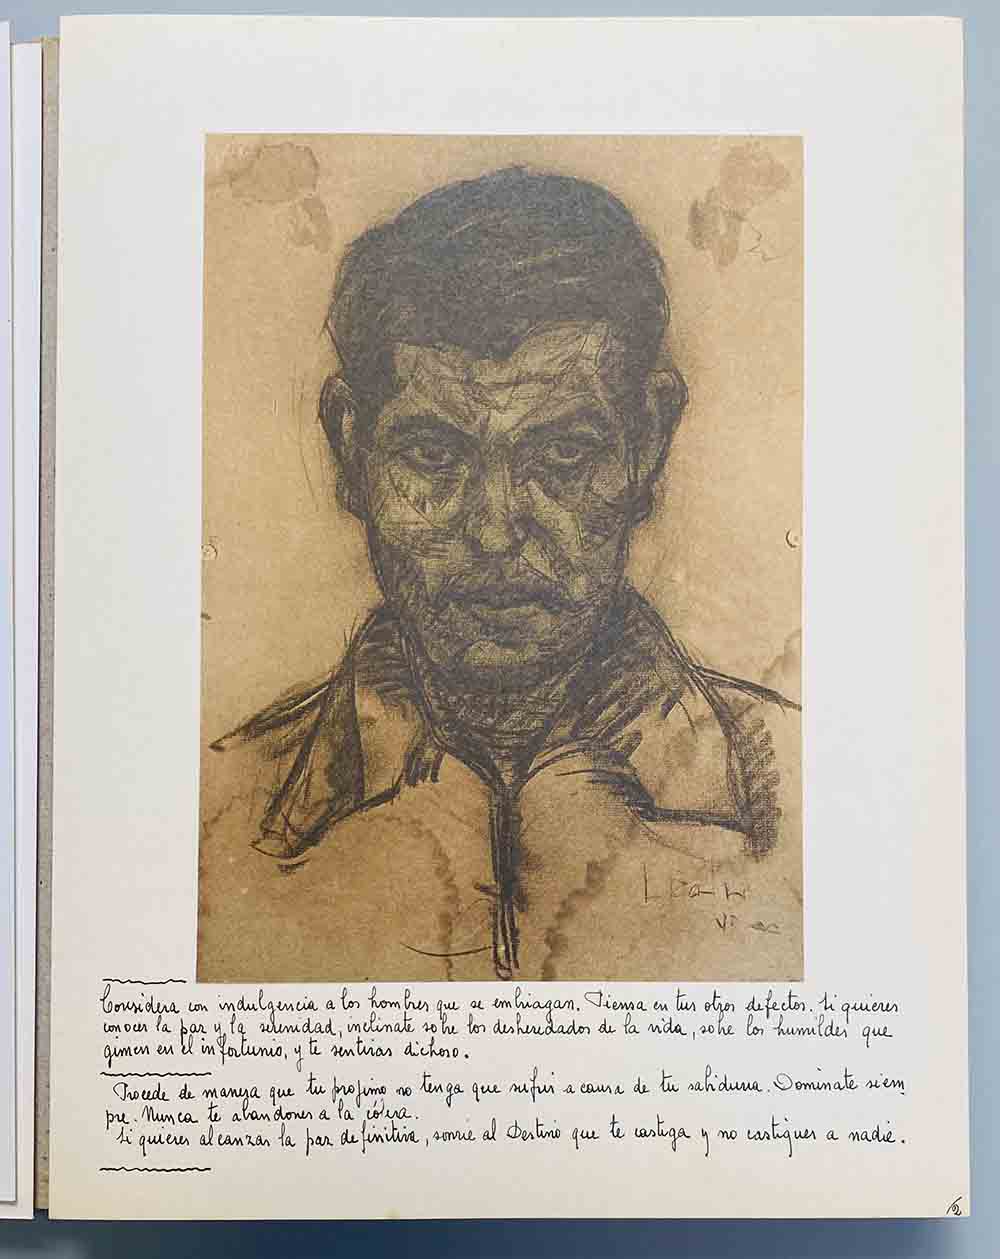 Considera con indulgencia a los hombres que se embriagan. Piensa en tus otros defectos. Si quieres
conocer la paz y la serenidad, inclinate sobre los desheredados de la vida, sobre los humildes que
gimen en el infortunio, y te sentiras dichoso.
Procede de manera que tu projimo no tenga que sufrir a causa de tu sabiduria. Dominate siem-
pre. Nunca te abandones a la cólera.
Si quieres alcanzar la paz definitiva, sonrie al Destino que te castiga y no castigues a nadie.